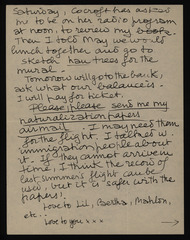 Saturday, Cocroft has asked
me to be on her radio program
at noon, to review my books.
Then I told May we would
lunch together and go to
sketch hau trees for the
mural.
Tomorrow will go to the bank,
ask what our balance is.
I will pay for ticket.
Please please send me my
naturalization papers
airmail. I may need them
for the flight. I talked w.
immigration people about
it. If they cannot arrive in
time, I think the record of
last summer's flight can be
used, but it is safer with the
papers!
Love to Lil, Bertha, Mahlon,
etc.
Love to you x x x